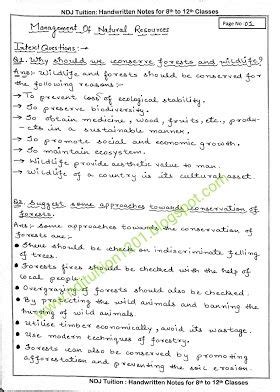 NDJ Tuition: Handwritten Notes for 8th to 12th Classes
Management Of Natural Resources
Page No: 01
Intext Questions:-
Q1. Why should we conserve forests and wildlife?
Ans: Wildlife and forests should be conserved for
the following reasons:-
→ To prevent loss of ecological stability.
→ To preserve biodiversity.
→ To obtain medicine, wood, fruits, etc., produ-
cts in a sustainable manner.
→ To promote social and economic growth.
→ To maintain ecosystem.
→ Wildlife provide aesthetic value to man.
→ Wildlife of a country is its cultural asset.
Q2. Suggest some approaches towards conservation of
forests.
Ans: Some approaches towards the conservation of
forests are:-
There should be check on indiscriminate felling
of trees.
Forests fires should be checked with the help of
local people.
Overgrazing of forests should also be checked.
By protecting the wild animals and banning the
hunting of wild animals.
Utilise timber economically, avoid its wastage.
Use modern techniques of forestry.
Forests can also be conserved by promoting
afforestation and preventing the soil erosion.
NDJ Tuition : Handwritten Notes for 8th to 12th Classes